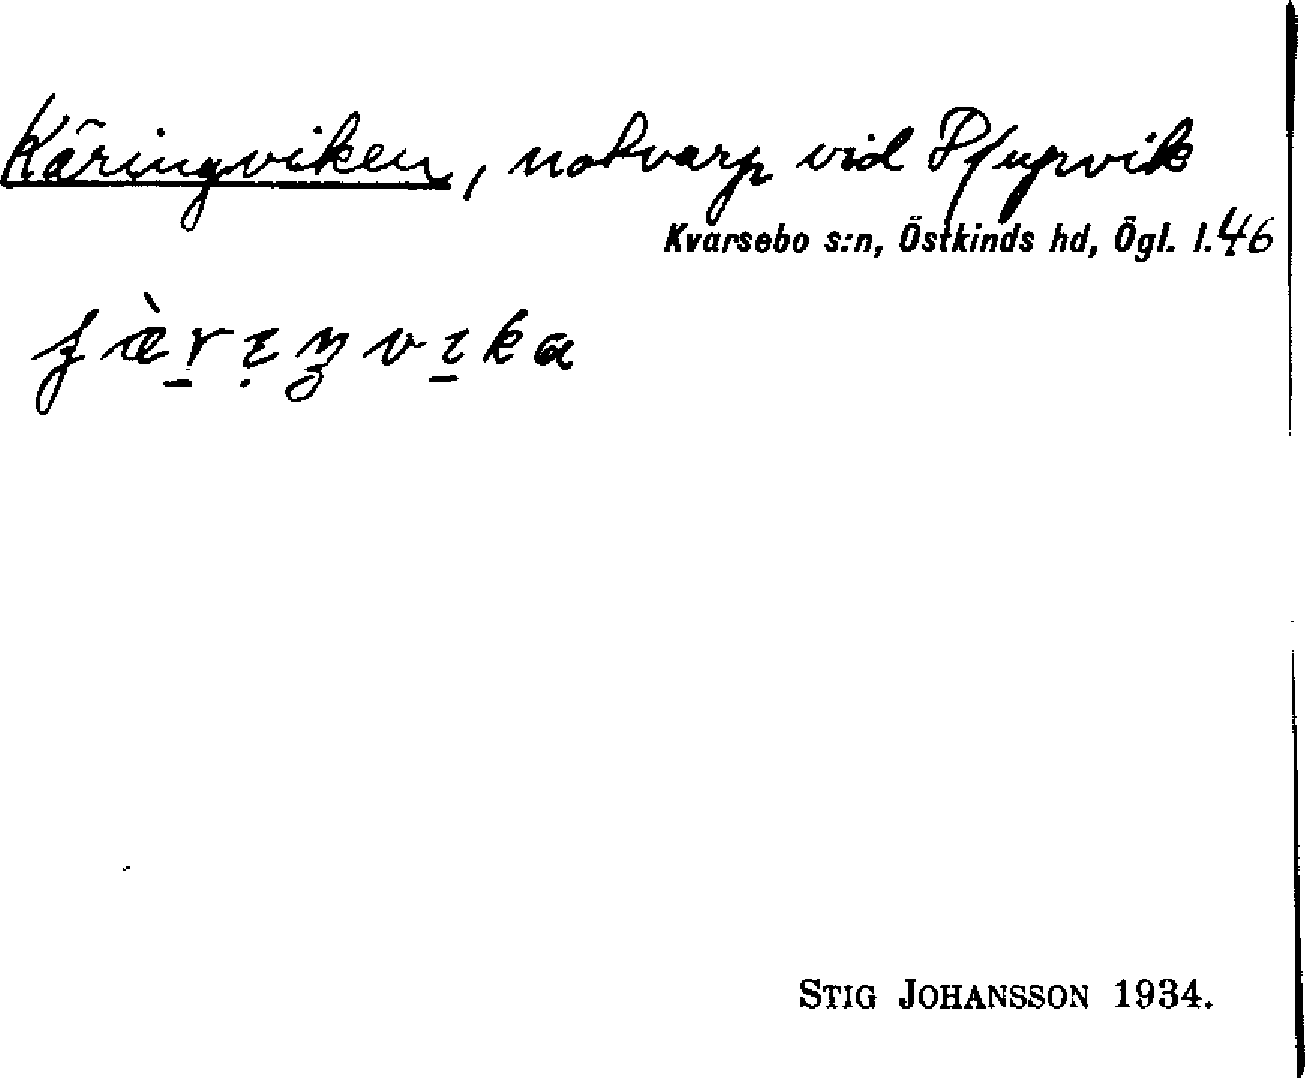 Käringviken, notvarp vid Djupvik
Kvarsebo s:n, Östkinds hd, Ögl. l. 46
STIG JOHANSSON 1934.